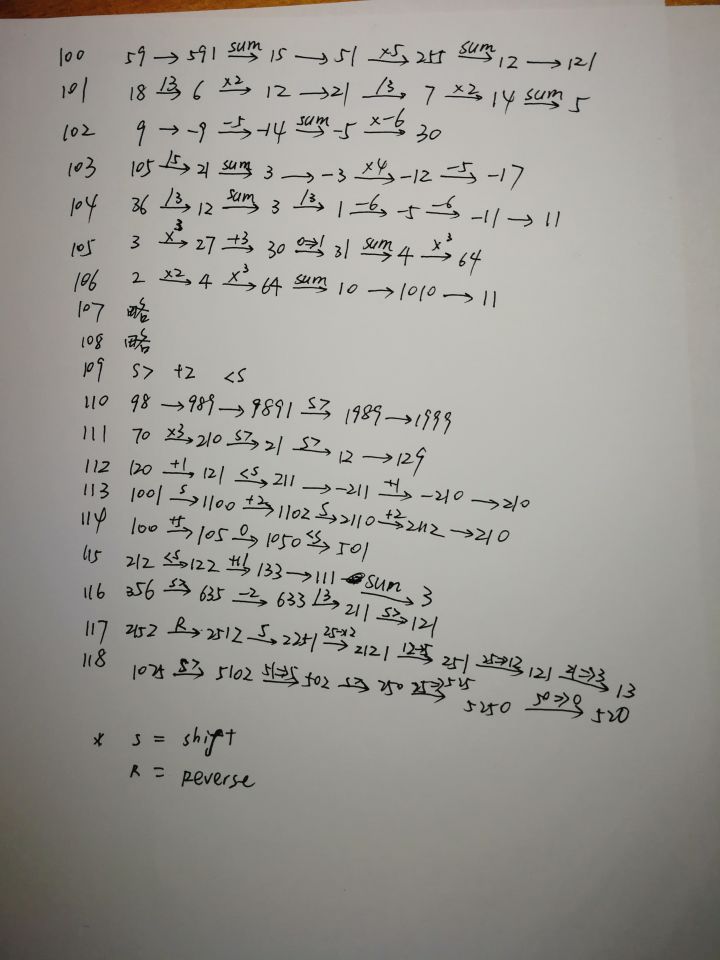 100 59 → 591 sum→ 15 → 51 ×5→ 255 sum→ 12 → 121
101 18 /3→ 6 ×2→ 12 → 21 /3→ 7 ×2→ 14 sum→ 5
102 9 → -9 -5→ -14 sum→ -5 ×-6→ 30
103 105 /5→ 21 sum→ 3 → -3 ×4→ -12 -5→ -17
104 36 /3→ 12 sum→ 3 /3→ 1 -6→ -5 -6→ -11 → 11
105 3 x³→ 27 +3→ 30 0⇒1→ 31 sum→ 4 x³→ 64
106 2 ×2→ 4 x³→ 64 sum→ 10 → 1010 → 11
107 略
108 略
109 S> +2 <S
110 98 → 989 → 9891 S>→ 1989 → 1999
111 70 ×3→ 210 S>→ 21 S>→ 12 → 129
112 120 +1→ 121 <S→ 211 → -211 +1→ -210 → 210
113 1001 S→ 1100 +2→ 1102 S→ 2110 +2→ 2112 → 210
114 100 +5→ 105 0→ 1050 <S→ 501
115 212 <S→ 122 +11→ 133 → 111 sum→ 3
116 356 S>→ 635 -2→ 633 /3→ 211 S>→ 121
117 252 R→ 2512 S→ 2251 25⇒12→ 2121 12⇒5→ 251 25⇒12→ 121 21⇒3→ 13
118 1025 S>→ 5102 51⇒5→ 502 S>→ 250 25⇒525→ 5250 50⇒0→ 520
* S = shift
R = reverse